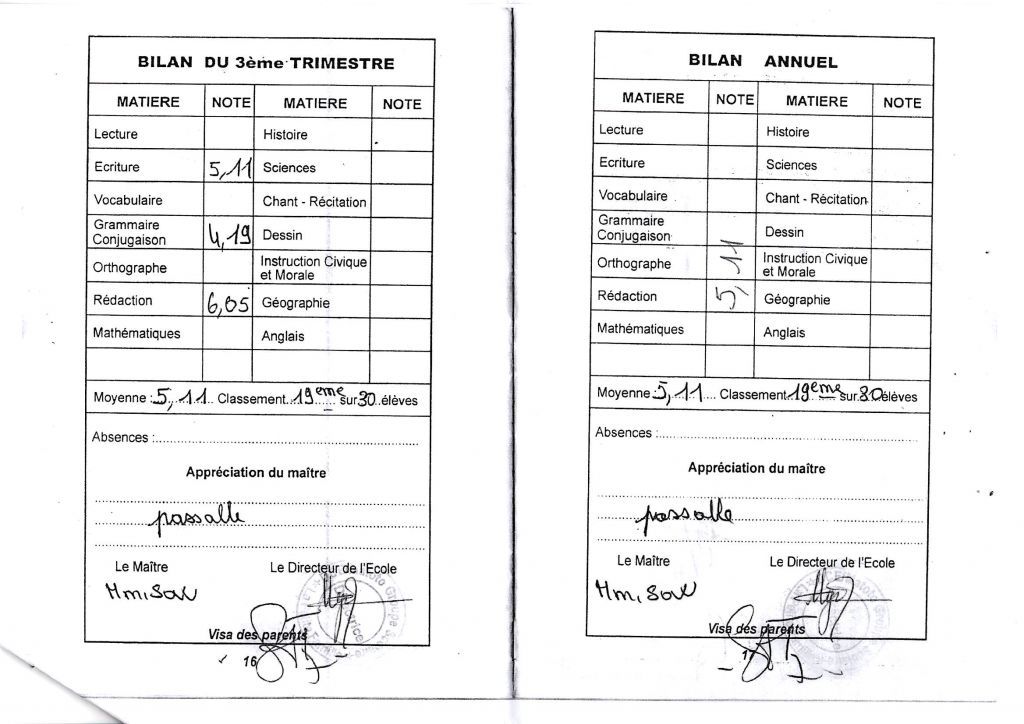 BILAN DU 3ème TRIMESTRE
MATIERE NOTE MATIERE NOTE
Lecture Histoire
Ecriture 5,11 Sciences
Vocabulaire Chant - Récitation
Grammaire
Conjugaison 4,19 Dessin
Orthographe Instruction Civique
et Morale
Rédaction 6,05 Géographie
Mathématiques Anglais
Moyenne : 5,11 Classement 19eme sur 30 élèves
Absences :
Appréciation du maître
passable
Le Maître Le Directeur de l'Ecole
Visa des parents
16
BILAN ANNUEL
MATIERE NOTE MATIERE NOTE
Lecture Histoire
Ecriture Sciences
Vocabulaire Chant - Récitation
Grammaire
Conjugaison Dessin
Orthographe Instruction Civique
et Morale
5,11
Rédaction Géographie
Mathématiques Anglais
Moyenne : 5,11 Classement 19eme sur 30 élèves
Absences :
Appréciation du maître
passable
Le Maître Le Directeur de l'Ecole
Visa des parents
17